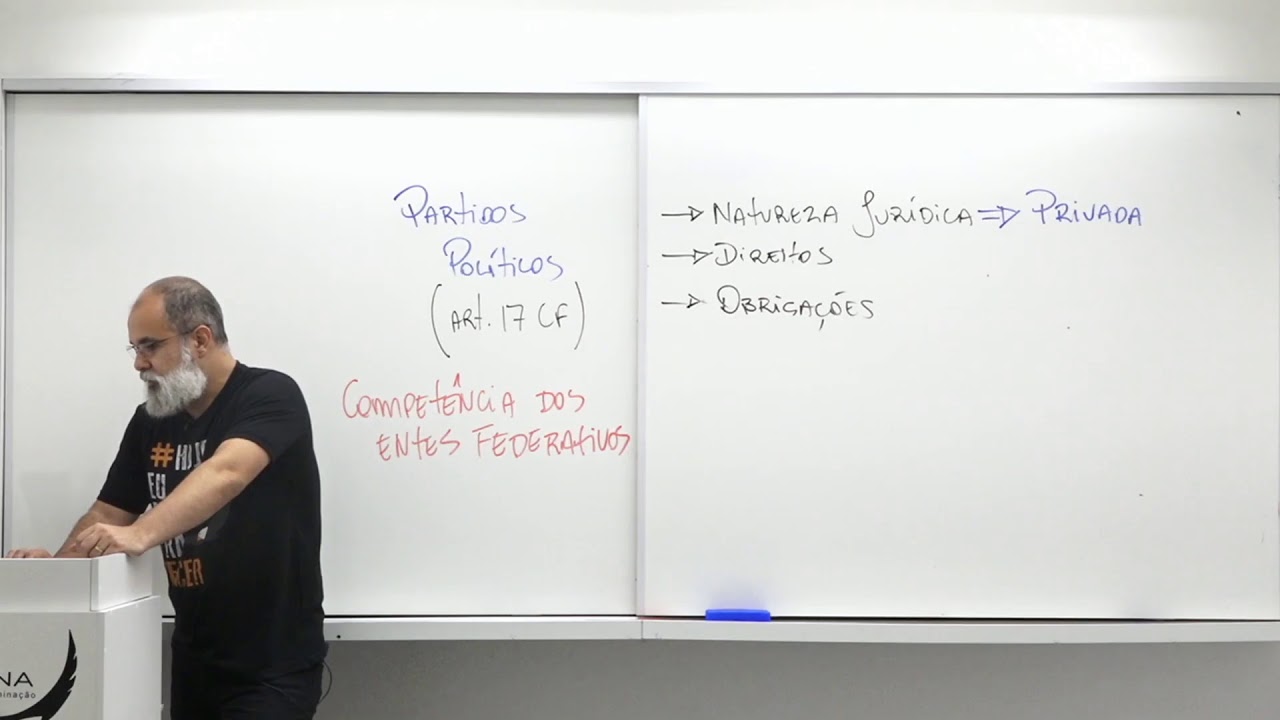 PARTIDOS
POLÍTICOS
(ART. 17 CF)
COMPETÊNCIA DOS
ENTES FEDERATIVOS
→ NATUREZA JURÍDICA ⇒ PRIVADA
→ DIREITOS
→ OBRIGAÇÕES
#
EU
NA